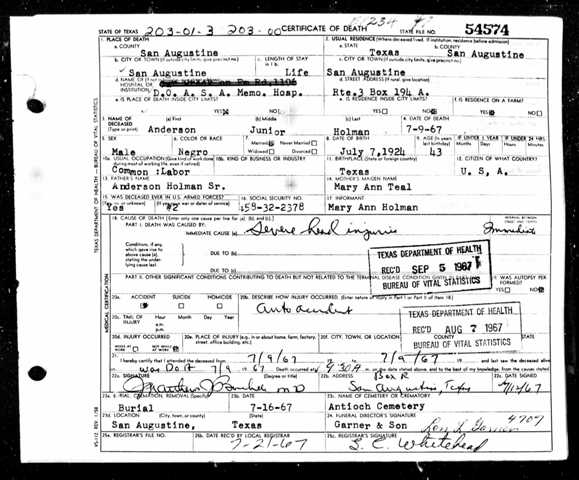 234
STATE OF TEXAS 203-01-3 203-00 CERTIFICATE OF DEATH STATE FILE NO. 54574
1. PLACE OF DEATH
a. COUNTY
San Augustine
2. USUAL RESIDENCE (Where deceased lived. If institution: residence before admission)
a. STATE
Texas
b. COUNTY
San Augustine
b. CITY OR TOWN (If outside city limits, give precinct no.)
San Augustine
c. LENGTH OF STAY
Life
c. CITY OR TOWN (If outside city limits, give precinct no.)
San Augustine
d. NAME OF (If not
HOSPITAL OR
INSTITUTION
on Fm Rd. 1196
D.O. A. S. A. Memo. Hosp.
d. STREET ADDRESS (If rural, give location)
Rte.3 Box 194 A.
e. IS PLACE OF DEATH INSIDE CITY LIMITS?
YES NO
e. IS RESIDENCE INSIDE CITY LIMITS?
YES NO
f. IS RESIDENCE ON A FARM?
YES NO
3. NAME OF DECEASED (Type or print)
(a) First
Anderson
(b) Middle
Junior
(c) Last
Holman
4. DATE OF DEATH
7-9-67
5. SEX
Male
6. COLOR OR RACE
Negro
7. Married Never Married
Widowed Divorced
8. DATE OF BIRTH
July 7,1924
9. AGE
43
IF UNDER 1 YEAR
Months Days
IF UNDER 24 HRS.
Hours Min.
10a. USUAL OCCUPATION (Give kind of work done during most of working life, even if retired)
Common :Labor
10b. KIND OF BUSINESS OR INDUSTRY
11. BIRTHPLACE (State or foreign country)
Texas
12. CITIZEN OF WHAT COUNTRY?
U. S. A.
13. FATHER'S NAME
Anderson Holman Sr.
14. MOTHER'S MAIDEN NAME
Mary Ann Teal
15. WAS DECEASED EVER IN U.S. ARMED FORCES?
Yes #2
16. SOCIAL SECURITY NO.
458-32-2378
17. INFORMANT
Mary Ann Holman
18. CAUSE OF DEATH (Enter only one cause per line for (a), (b), and (c).)
PART I. DEATH WAS CAUSED BY:
IMMEDIATE CAUSE (a) Severe head injuries
INTERVAL BETWEEN
ONSET AND DEATH
Immediate
Conditions, if any, which gave rise to above cause (a), stating the underlying cause last.
DUE TO (b)
DUE TO (c)
TEXAS DEPARTMENT OF HEALTH
REC'D SEP 5 1967
BUREAU OF VITAL STATISTICS
PART II. OTHER SIGNIFICANT CONDITIONS CONTRIBUTING TO DEATH BUT NOT RELATED TO THE TERMINAL DISEASE CONDITION GIVEN
19. WAS AUTOPSY PERFORMED?
YES NO
20a. ACCIDENT SUICIDE HOMICIDE
20b. DESCRIBE HOW INJURY OCCURRED. (Enter nature of injury in Part I or Part II of item 18)
auto accident
20c. TIME OF INJURY
Hour Month Day Year
TEXAS DEPARTMENT OF HEALTH
REC'D AUG 7 1967
BUREAU OF VITAL STATISTICS
20d. INJURY OCCURRED
WHILE AT WORK NOT WHILE AT WORK
20e. PLACE OF INJURY (e.g., in or about home, farm, factory, street, office building, etc.)
20f. CITY, TOWN, OR LOCATION COUNTY STATE
21. I hereby certify that I attended the deceased from 7/9/67 to 7/9/67
was DOA 7/9 1967 Death occurred at 9:30 A m. on the date stated above, and to the best of my knowledge, from the causes stated.
22a. SIGNATURE (Degree or title)
MD
22b. ADDRESS
Box R
San Augustine, Texas
22c. DATE SIGNED
23a. BURIAL, CREMATION, REMOVAL (Specify)
Burial
23b. DATE
7-16-67
23c. NAME OF CEMETERY OR CREMATORY
Antioch Cemetery
23d. LOCATION (City, town, or county) (State)
San Augustine, Texas
24. FUNERAL DIRECTOR'S SIGNATURE
Garner & Son
4707
25a. REGISTRAR'S FILE NO.
25b. DATE REC'D BY LOCAL REGISTRAR
7-21-67
25c. REGISTRAR'S SIGNATURE
S. C. Whitehead
TEXAS DEPARTMENT OF HEALTH — BUREAU OF VITAL STATISTICS
MEDICAL CERTIFICATION